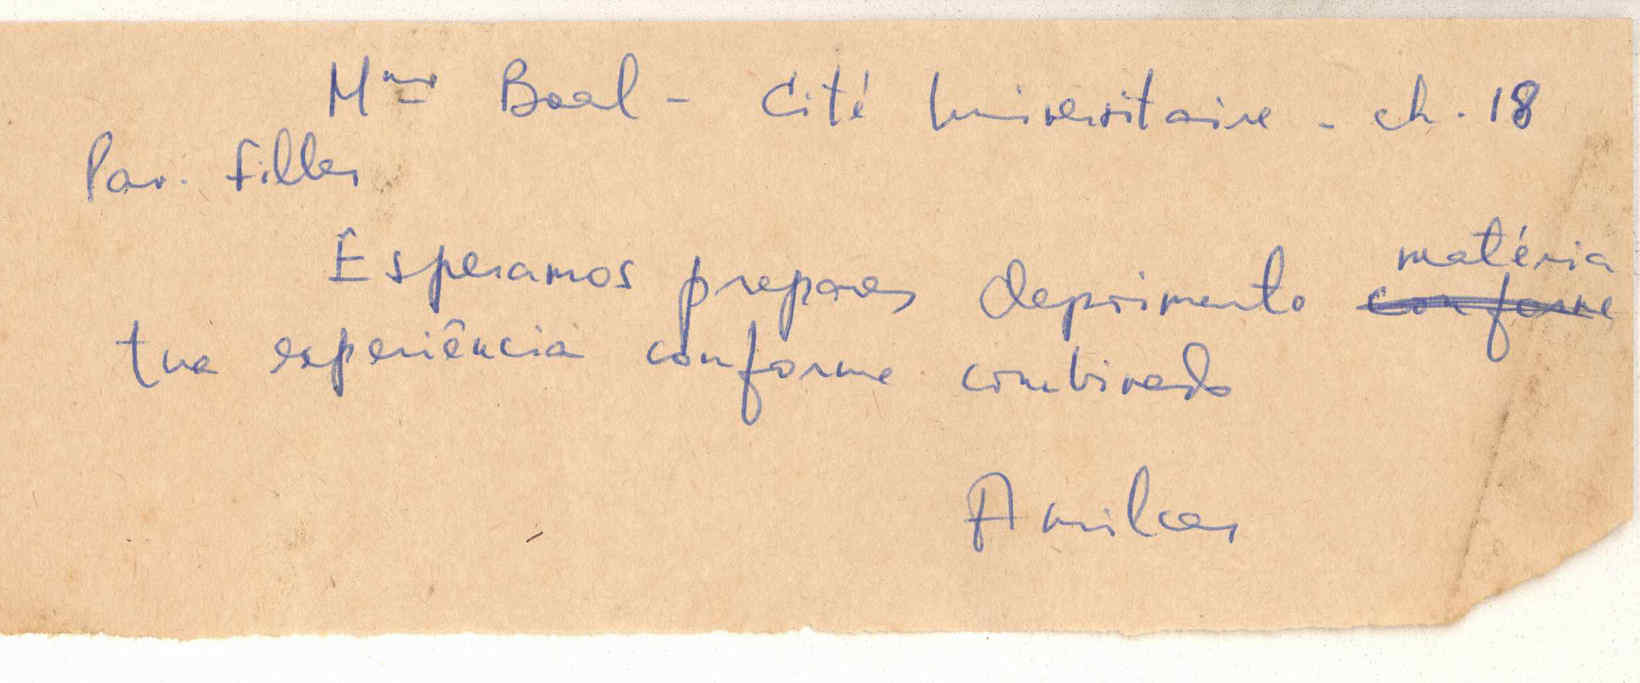 Mme Boal - Cité Universitaire - ch. 18
Pav. filles
Esperamos prepares depoimento matéria
tua experiência conforme combinado
Amilcar